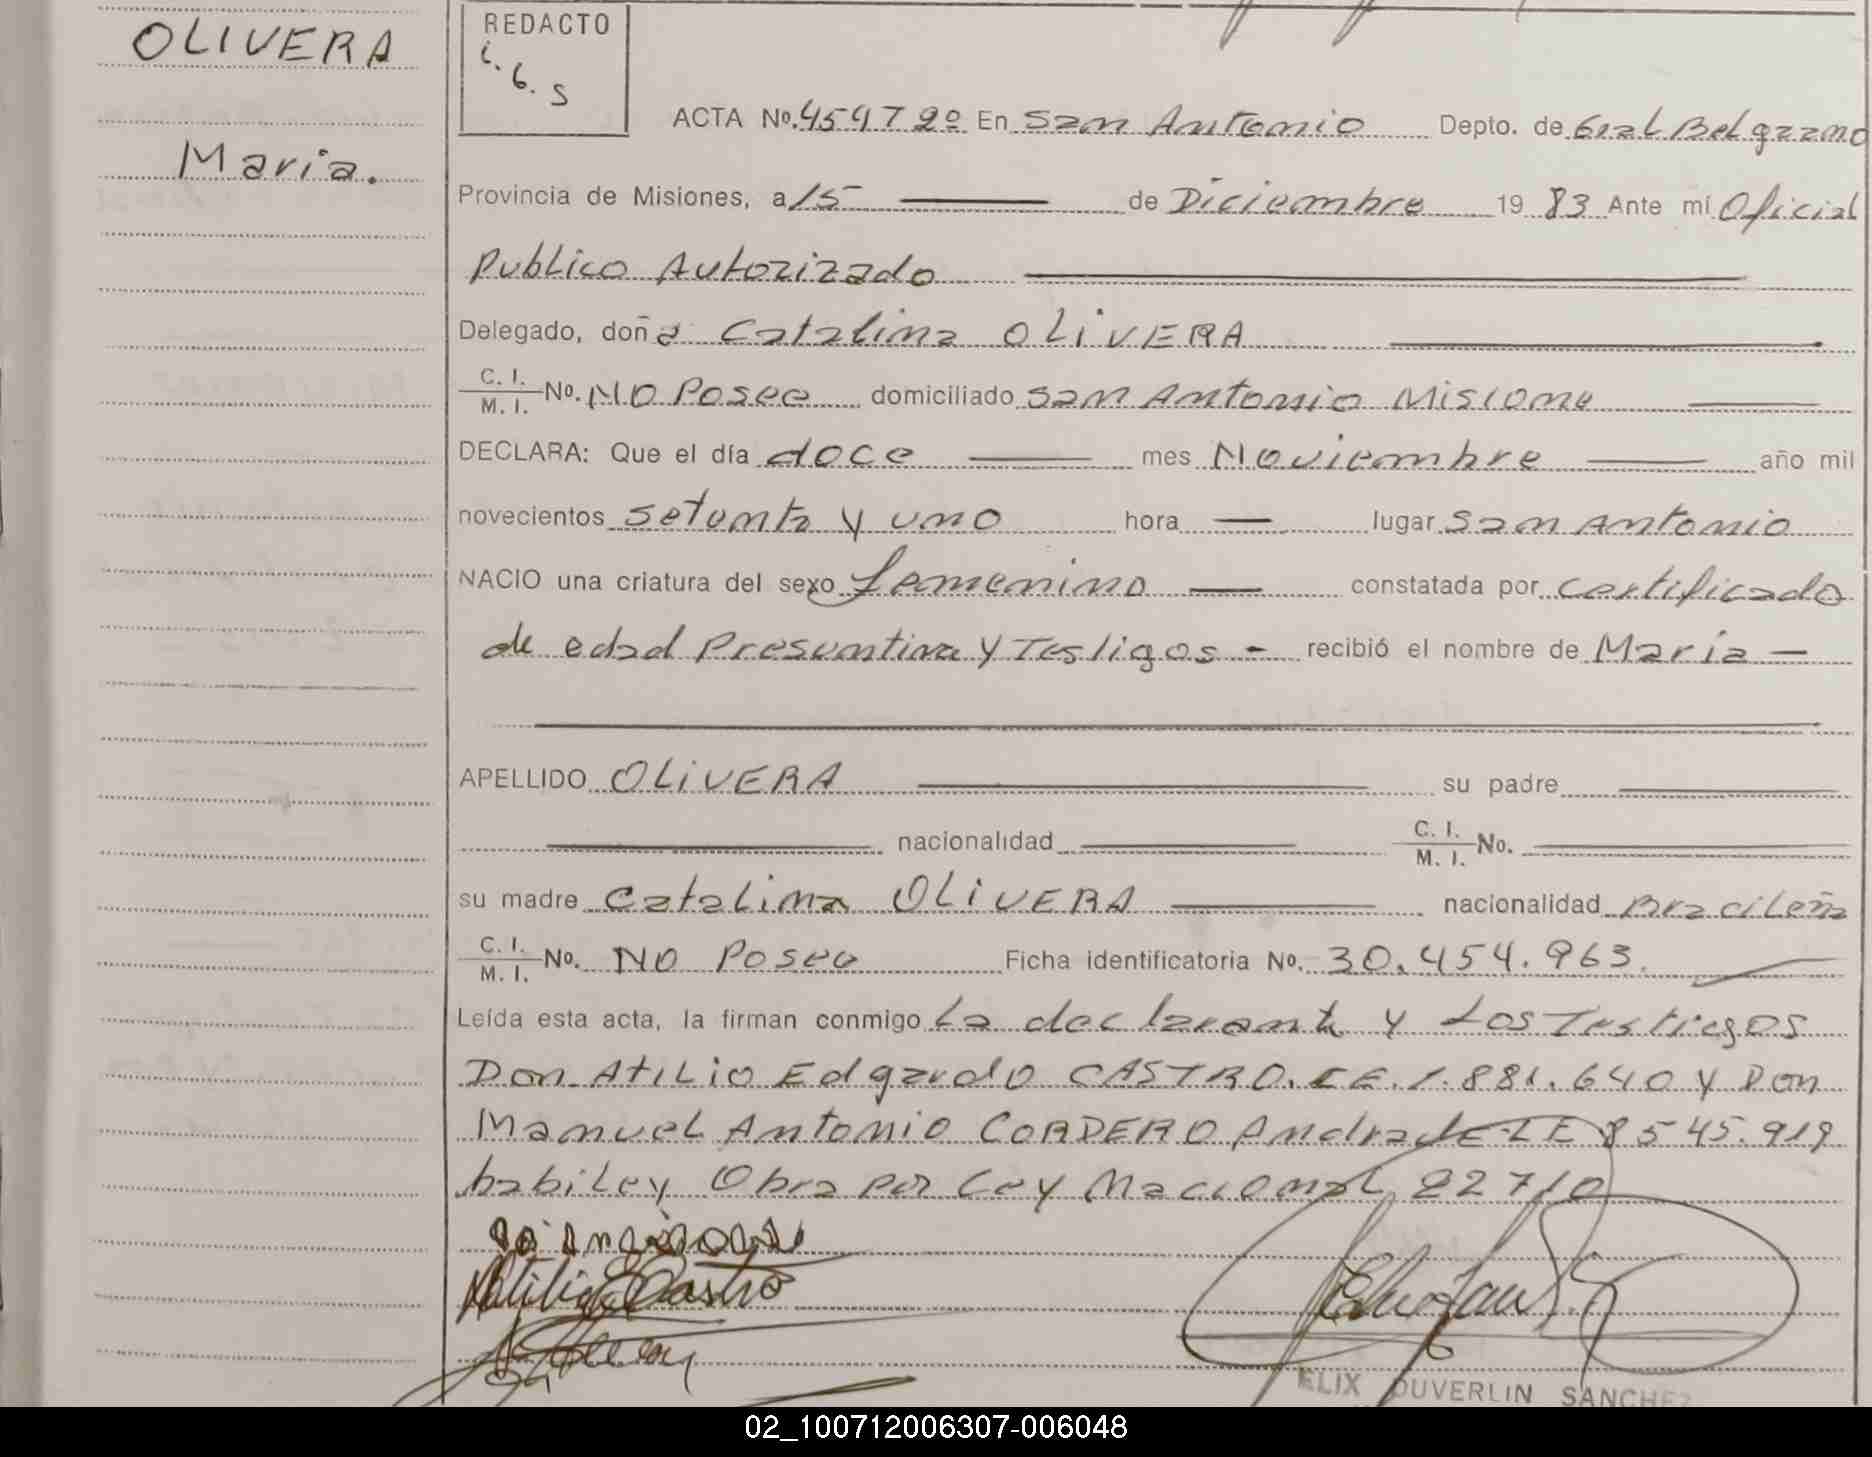 OLIVERA
Maria.
REDACTO
i. G. S
ACTA Nº. 4597 2º En San Antonio Depto. de Gral Belgrano
Provincia de Misiones, a 15 de Diciembre 19 83 Ante mí Oficial
Publico Autorizado
Delegado, doña Catalina OLIVERA
C. I. M. I. Nº. NO Posee domiciliado San Antonio Misione
DECLARA: Que el día doce mes Noviembre año mil
novecientos setenta y uno hora lugar San Antonio
NACIO una criatura del sexo femenino constatada por certificado
de edad Presuntiva y Testigos - recibió el nombre de María
APELLIDO OLIVERA su padre
nacionalidad C. I. M. I. No.
su madre Catalina OLIVERA nacionalidad Bracileña
C. I. M. I. No. NO Poseo Ficha identificatoria No. 30.454.963.
Leída esta acta, la firman conmigo La declarante y Los Testigos
Don Atilio Edgardo CASTRO. 1.881.640 y Don
Manuel Antonio CORDERO Andrade LE 8545.919
habiLey Obra por Ley Nacional 22710
Atilio E Castro
ELIX DUVERLIN SANCHEZ
02_100712006307-006048